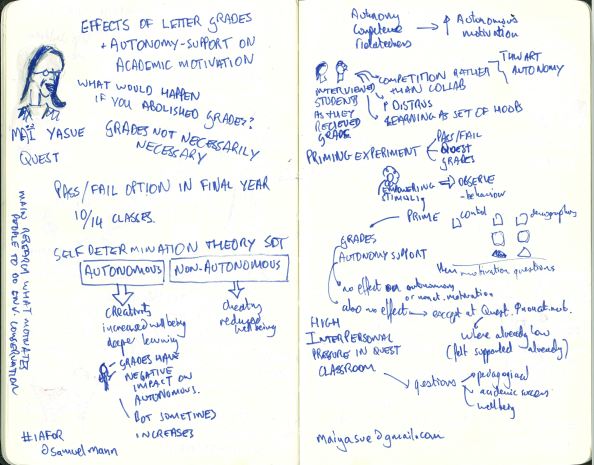 EFFECTS OF LETTER GRADES
+ AUTONOMY-SUPPORT ON
ACADEMIC MOTIVATION
WHAT WOULD HAPPEN
IF YOU ABOLISHED GRADES?
MAI YASUE
QUEST
GRADES NOT NECESSARILY
NECESSARY
PASS/FAIL OPTION IN FINAL YEAR
10/14 CLASSES.
SELF DETERMINATION THEORY SDT
AUTONOMOUS
NON-AUTONOMOUS
creativity
increased well being
deeper learning
cheating
reduced
well being
GRADES HAVE
NEGATIVE
IMPACT ON
AUTONOMOUS.
BUT SOMETIMES
INCREASES
MAIN RESEARCH WHAT MOTIVATES
PEOPLE TO DO ENV. CONSERVATION
#IAFOR
@samuelmann
Autonomy
Competence
relatedness
↑ Autonomous
motivation
INTERVIEWED
STUDENTS
AS THEY
RECIEVED
GRADE
COMPETITION RATHER
THAN COLLAB
THWART
AUTONOMY
↑ DISTRUS
LEARNING AS SET OF HOOPS
PRIMING EXPERIMENT
PASS/FAIL
QUEST
GRADES
EMPOWERING
STIMULI
OBSERVE
-behaviour
PRIME
control
demographics
GRADES
AUTONOMY SUPPORT
then motivation questions
no effect on autonomous
or unaut. motivation
also no effect → except at Quest.
where already low
(felt supported already)
HIGH
INTERPERSONAL
PRESSURE IN QUEST
CLASSROOM
questions
pedagogical
academic success
wellbeing
maiyasue@gmail.com